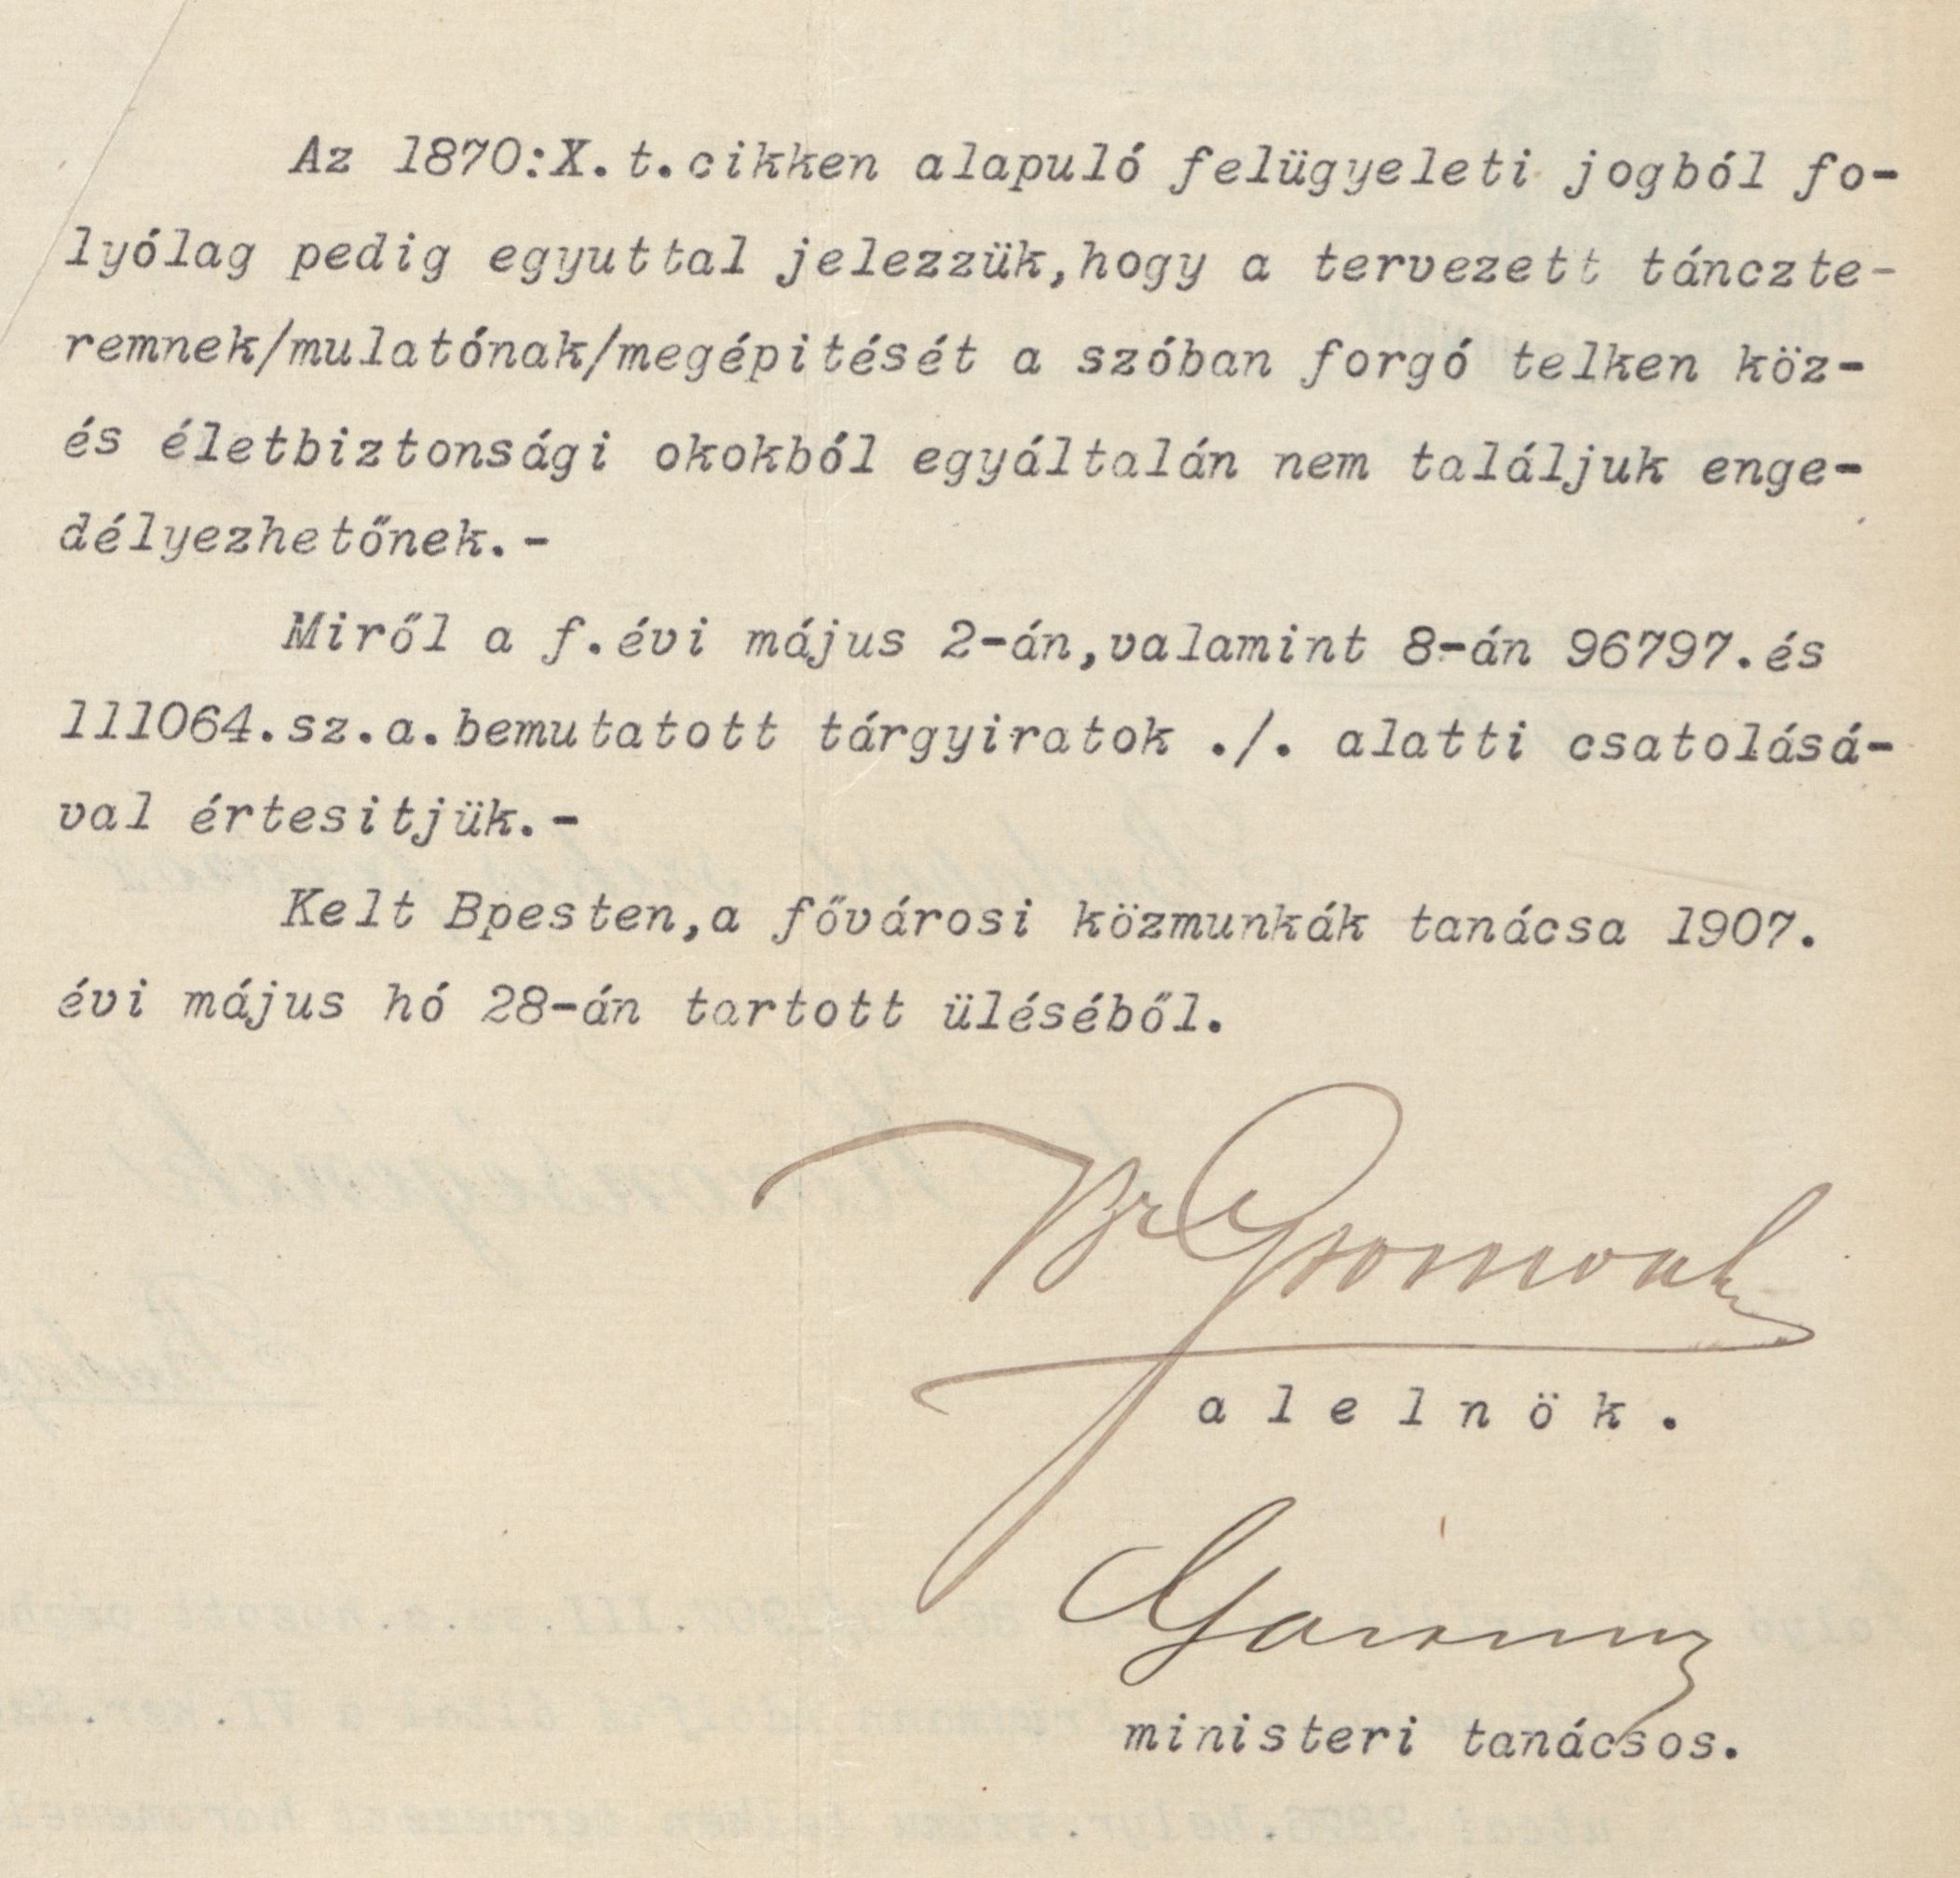 Az 1870:X.t.cikken alapuló felügyeleti jogból fo-
lyólag pedig egyuttal jelezzük,hogy a tervezett tánczte-
remnek/mulatónak/megépitését a szóban forgó telken köz-
és életbiztonsági okokból egyáltalán nem találjuk enge-
délyezhetőnek.-
Miről a f.évi május 2-án,valamint 8-án 96797.és
111064.sz.a.bemutatott tárgyiratok ./. alatti csatolásá-
val értesitjük.-
Kelt Bpesten,a fővárosi közmunkák tanácsa 1907.
évi május hó 28-án tartott üléséből.
alelnök.
ministeri tanácsos.